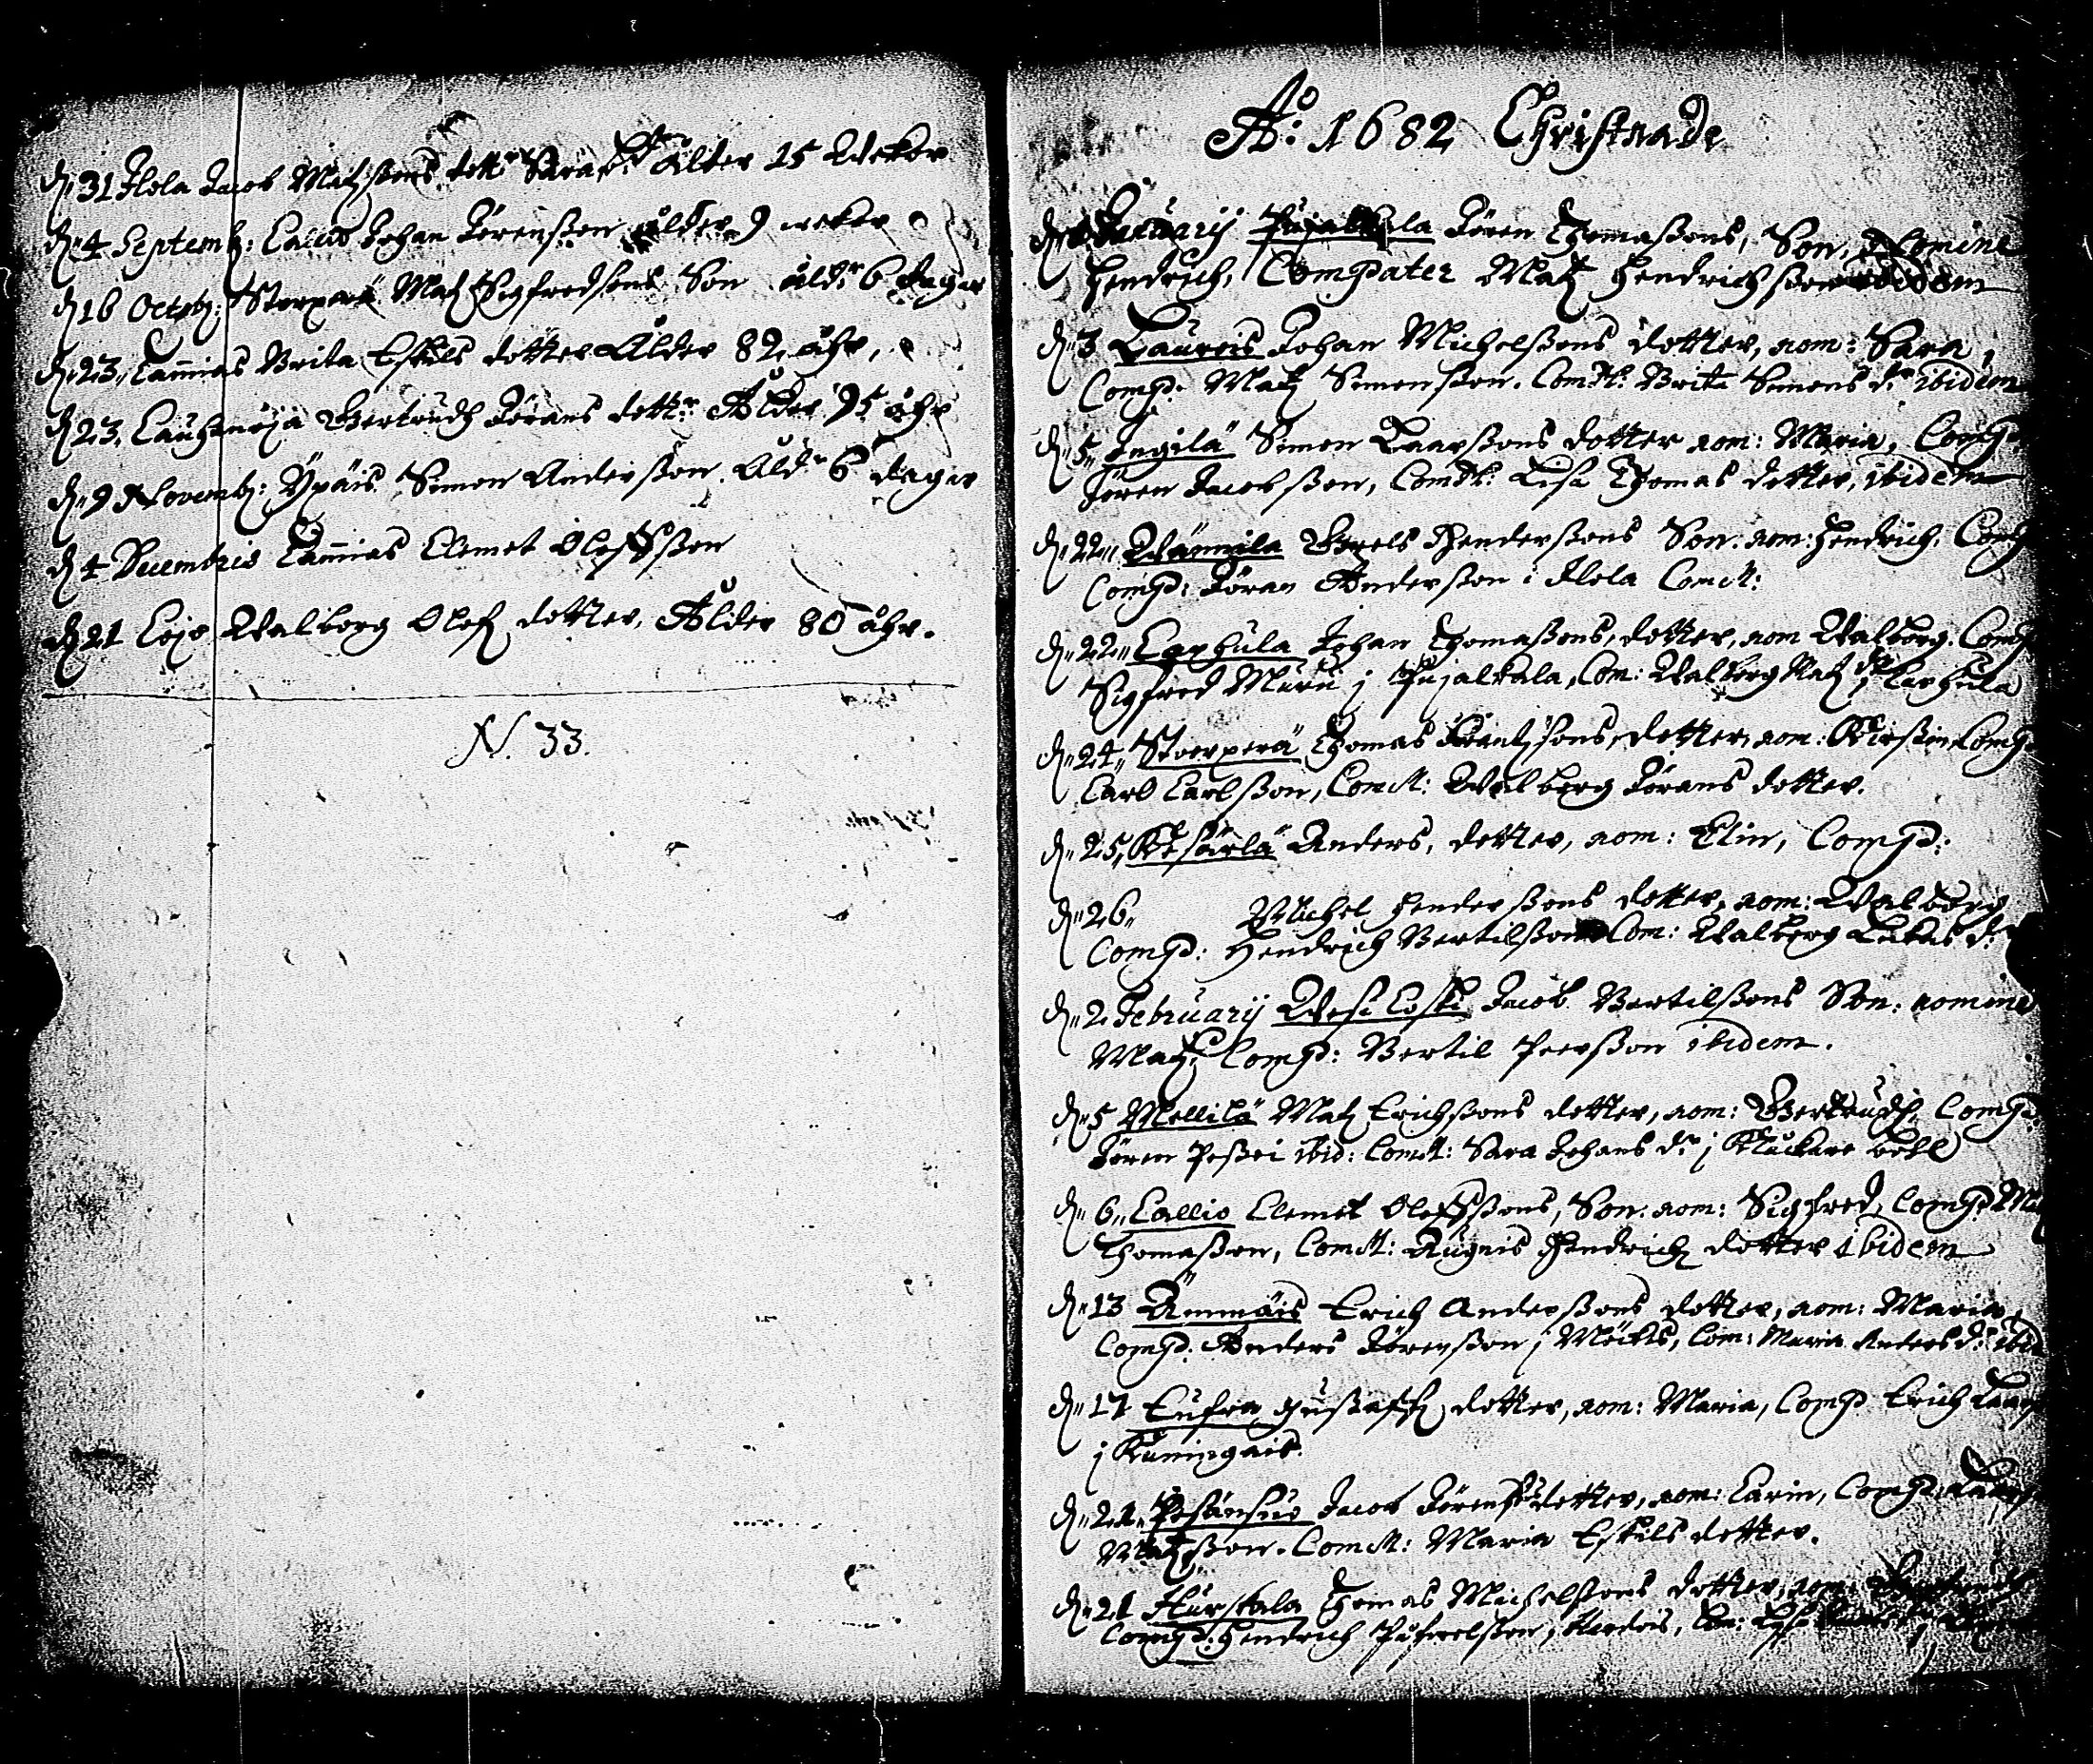 d. 31 Flola Jacob Matzsons dott. Sara ålder 15 Wekor
d. 4 Septemb: Johan Jörensson ålder 9 wekor
d. 16 Octob: Storperä Matz Sigfredsons Son åld: 6 dagar
d. 23, Lammias Brita Eskils dotter Ålder 82 åhr,
d. 23, Gertrudh Jörans dottr Ålder 95 åhr
d. 9 Novemb: Ypäis Simon Andersson Åldr 6 dagar
d. 4 Decembris Lammias Clemet Oloffsson
d. 21 Lojo Walborg Olofz dotter, Ålder 80 åhr.
N. 33.
Ao: 1682 Christnade
d. Januarij Pujalkala Jören Thomassons, Son, Nomine
Hendrich, Compater Matz Hendrichsson ibidem
d. 3 Laurois Johan Michelssons dotter, nom: Sara,
Comp: Matz Simonsson. Comm: Brita Simons dr ibidem
d. 5. Ingilä Simon Laarssons dotter nom: Maria, Comp:
Jören Jacobsson, Comm: Lisa Thomas dotter, ibidem
d. 22. Wännila Hendersons Son. nom: Hendrich. Comp
Comp: Jöran Andersson i Flola Comm:
d. 22. Laxhula Johan Thomassons, dotter, nom Walborg. Comp
Sigfred Muru j Pujalkala, Com: Walborg Matz dr j Laxhula
d. 24. Storperä Thomas Frantzsons, dotter, nom: Kirstin Comp:
Carl Carlsson, Comm: Walborg Jörans dotter.
d. 25, Kesärlä Anders, dotter, nom: Elin, Comp:
d. 26. Michel Henderssons dotter, nom: Walborg
Comp: Hendrich Bertilsson Com: Walborg Lukas dr
d. 2 Februarij Wesi Coski Jacob Bertilssons Son: nomine
Matz Comp: Bertil Peersson ibidem.
d. 5 Mellilä Matz Erichssons dotter, nom: Gertrudh Comp:
Jören Possoi ibid: Comm: Sara Johans dr j Kluckare bohl
d. 6. Callio Clemet Oloffssons, Son. nom: Sigfred, Comp: Ma
Thomasson, Comm: Augnis Hendrichz dotter ibidem
d. 13 Ämmäis Erich Anderssons dotter, nom: Maria,
Comp: Anders Jörensson j Möckis, Com: Maria Anders dr ibid
d. 17 Cufra Gustaffz dotter, nom: Maria, Comp Erich Laars
j Kuningais.
d. 21. Pesänsuo Jacob Jörens dotter, nom: Carin, Comp:
Matzsson. Comm: Maria Eskils dotter.
d. 21 Hurskala Thomas Michelssons dotter, nom:
Comp: Hendrich